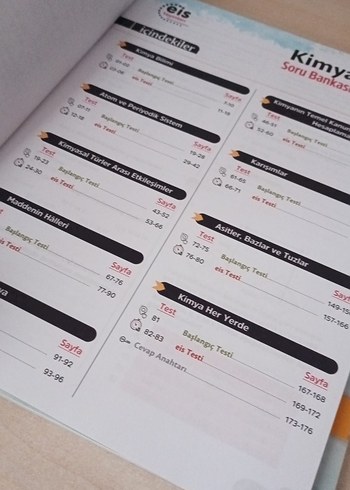 eis
içindekiler
Kimya
Soru Bankası
Kimya Bilimi
Test
Sayfa
01-02
Başlangıç Testi
eis Testi
11-18
Atom ve Periyodik Sistem
Test
Sayfa
Başlangıç Testi
19-28
12-18
eis Testi
29-42
Kimyasal Türler Arası Etkileşimler
Test
Sayfa
19-23
Başlangıç Testi
43-52
24-30
eis Testi
53-66
Maddenin Hâlleri
Sayfa
Başlangıç Testi
67-76
eis Testi
77-90
Sayfa
91-92
93-96
Kimyanın Temel Kanun
Hesaplama
Test
Başlangıç Testi
52-60
eis Testi
Karışımlar
Test
61-65
Başlangıç Testi
66-71
eis Testi
Asitler, Bazlar ve Tuzlar
Test
Sayfa
72-75
Başlangıç Testi
149-15
76-80
eis Testi
157-166
Kimya Her Yerde
Test
Sayfa
81
Başlangıç Testi
167-168
82-83
eis Testi
169-172
Cevap Anahtarı
173-176